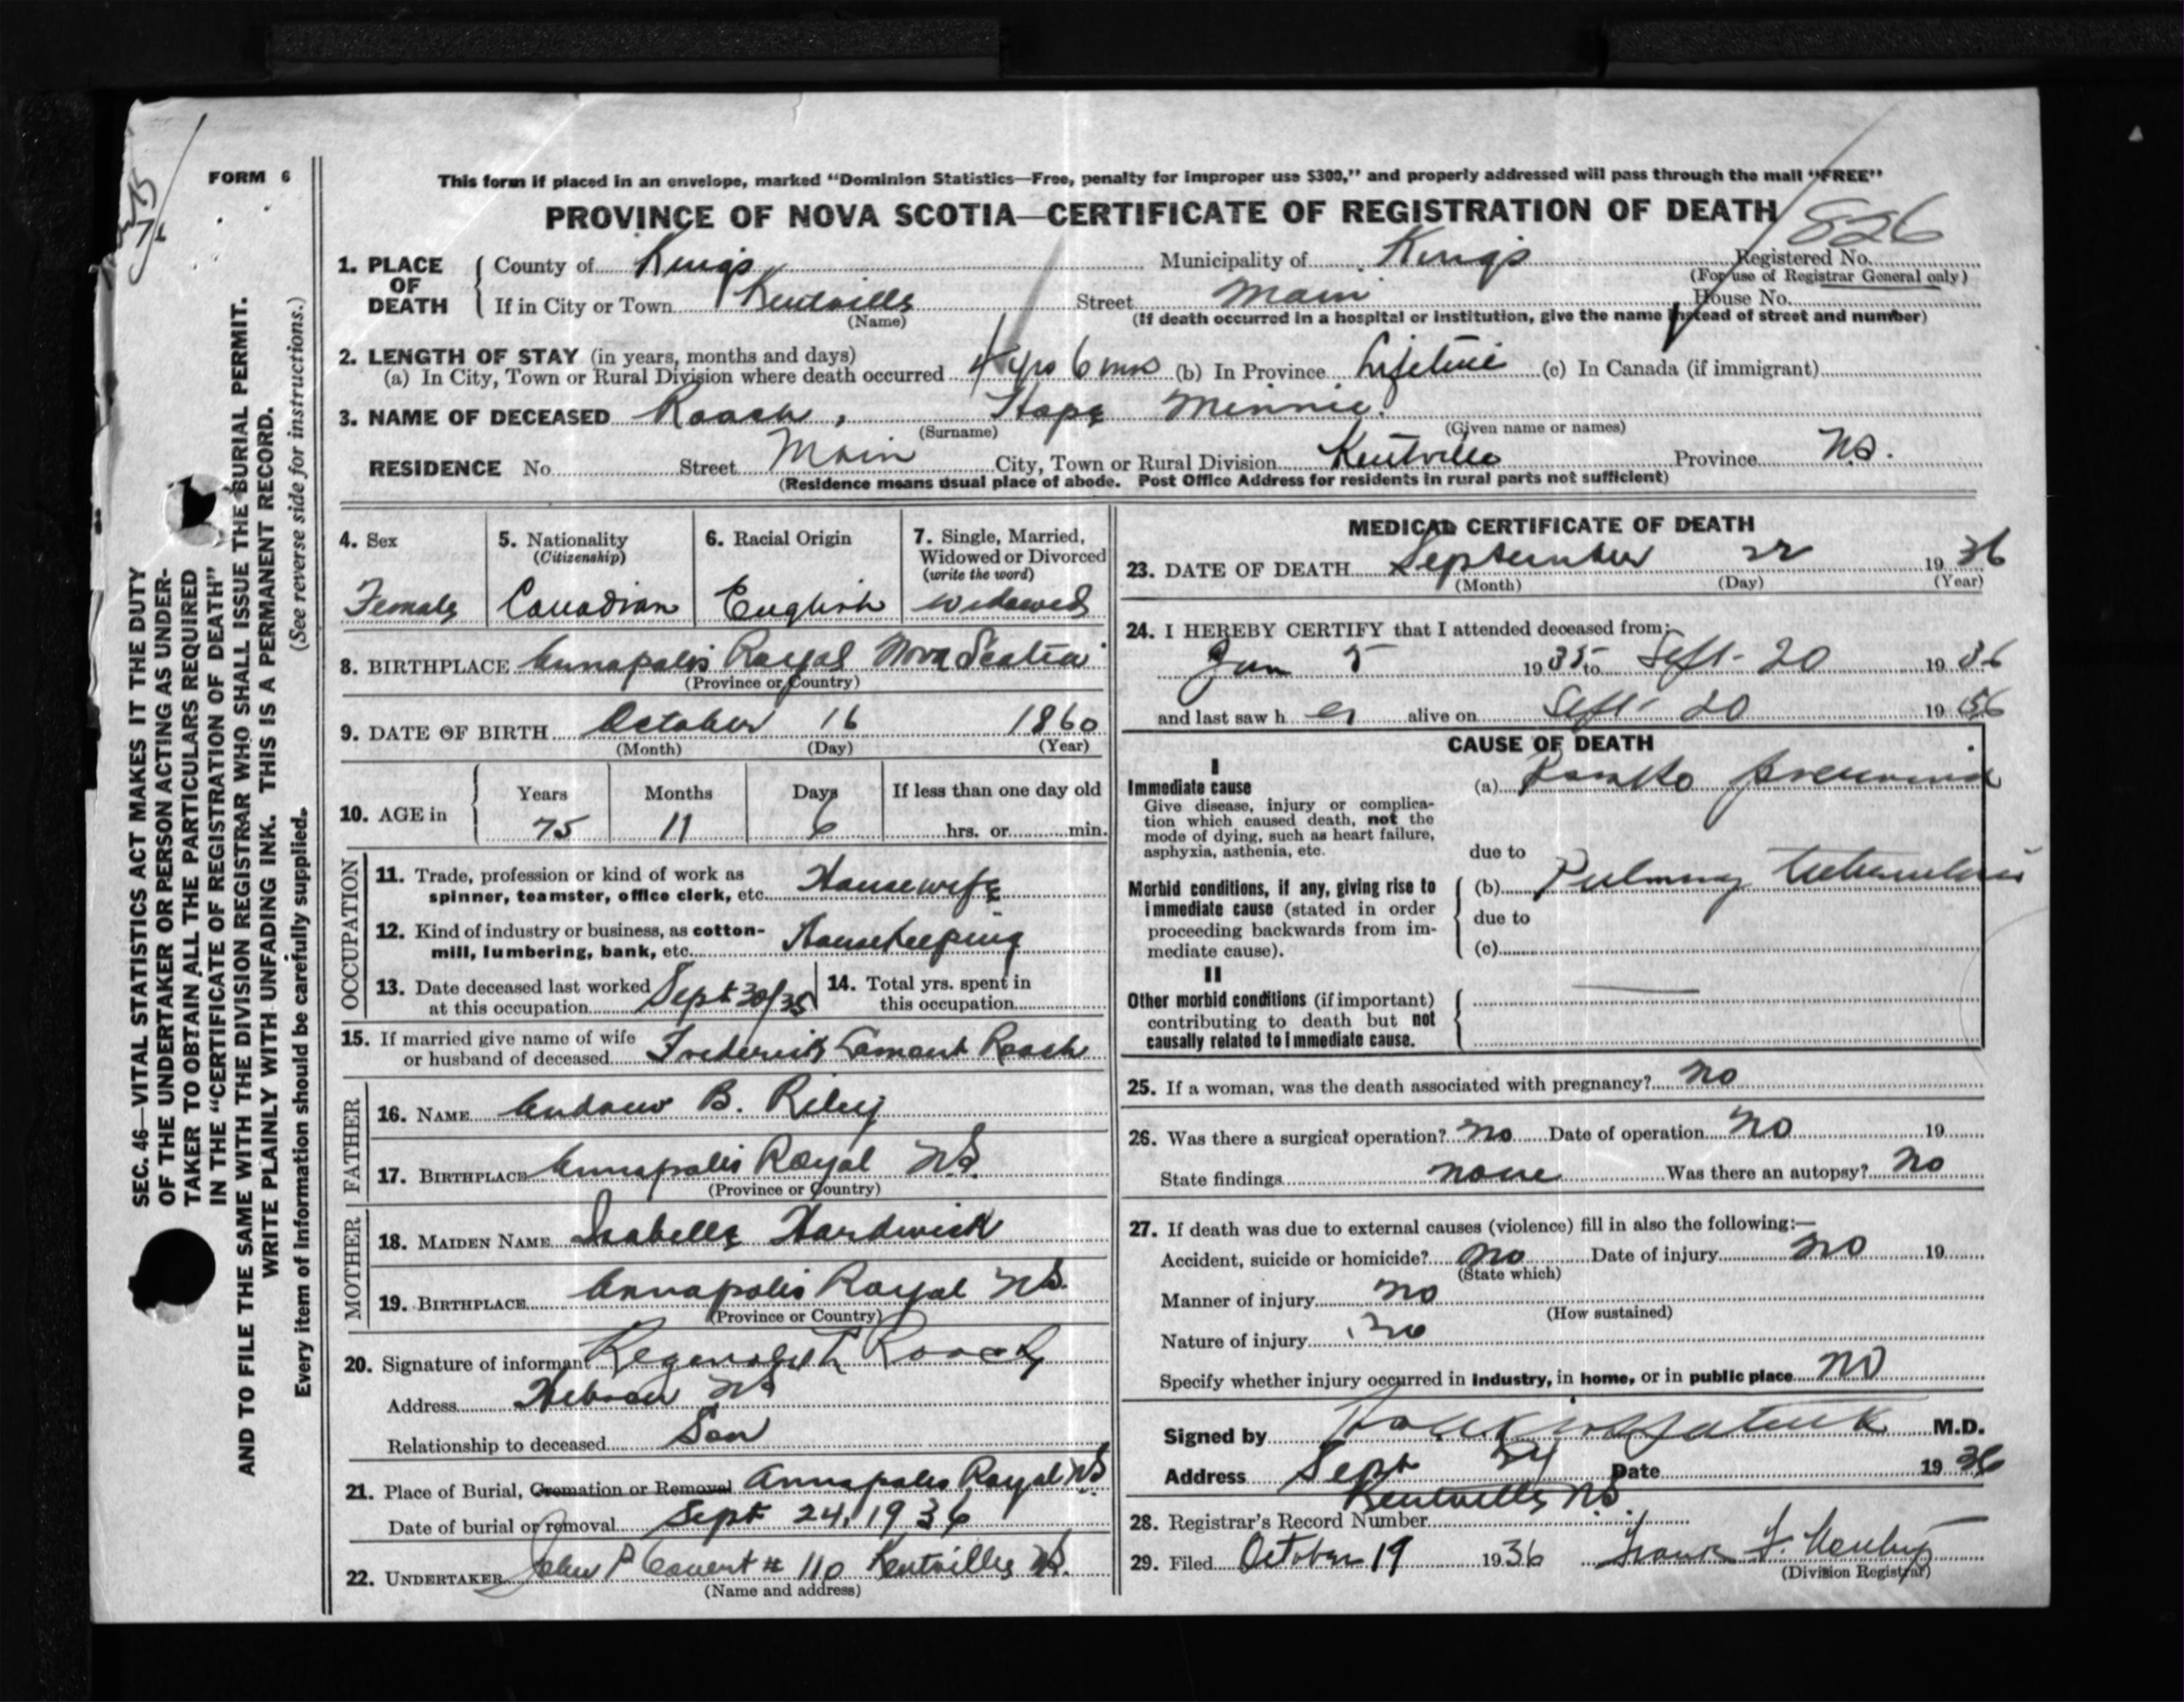 FORM 6
This form if placed in an envelope, marked “Dominion Statistics—Free, penalty for improper use $300,” and properly addressed will pass through the mail “FREE”
PROVINCE OF NOVA SCOTIA—CERTIFICATE OF REGISTRATION OF DEATH
826
1. PLACE OF DEATH County of Kings Municipality of Kings Registered No.
(For use of Registrar General only)
If in City or Town Kentville Street Main House No.
(Name) (If death occurred in a hospital or institution, give the name instead of street and number)
2. LENGTH OF STAY (in years, months and days)
(a) In City, Town or Rural Division where death occurred 4 yrs 6 mos (b) In Province Lifetime (c) In Canada (if immigrant)
3. NAME OF DECEASED Roach, Hope Minnie.
(Surname) (Given name or names)
RESIDENCE No. Street Main City, Town or Rural Division Kentville Province N.S.
(Residence means usual place of abode. Post Office Address for residents in rural parts not sufficient)
4. Sex
Female
5. Nationality
(Citizenship)
Canadian
6. Racial Origin
English
7. Single, Married,
Widowed or Divorced
(write the word)
Widowed
8. BIRTHPLACE Annapolis Royal Nova Scotia
(Province or Country)
9. DATE OF BIRTH October 16 1860
(Month) (Day) (Year)
10. AGE in
Years Months Days If less than one day old
75 11 6 hrs. or min.
OCCUPATION
11. Trade, profession or kind of work as
spinner, teamster, office clerk, etc. Housewife
12. Kind of industry or business, as cotton-
mill, lumbering, bank, etc. Housekeeping
13. Date deceased last worked
at this occupation Sept 30/35
14. Total yrs. spent in
this occupation
15. If married give name of wife
or husband of deceased Frederick Lamont Roach
FATHER
16. NAME Andrew B. Riley
17. BIRTHPLACE Annapolis Royal NS.
(Province or Country)
MOTHER
18. MAIDEN NAME Isabelle Hardwick
19. BIRTHPLACE Annapolis Royal NS.
(Province or Country)
20. Signature of informant Roach
Address Hebron NS
Relationship to deceased Son
21. Place of Burial, Cremation or Removal Annapolis Royal NS.
Date of burial or removal Sept 24, 1936
22. UNDERTAKER John P # 110 Kentville NS.
(Name and address)
MEDICAL CERTIFICATE OF DEATH
23. DATE OF DEATH September 22 1936
(Month) (Day) (Year)
24. I HEREBY CERTIFY that I attended deceased from:
Jan 5 1935 to Sept. 20 1936
and last saw her alive on Sept. 20 1936
CAUSE OF DEATH
I
Immediate cause
Give disease, injury or complica-
tion which caused death, not the
mode of dying, such as heart failure,
asphyxia, asthenia, etc.
(a) Broncho pneumonia
due to
Morbid conditions, if any, giving rise to
immediate cause (stated in order
proceeding backwards from im-
mediate cause).
(b) Pulmonary tuberculosis
due to
(c)
II
Other morbid conditions (if important)
contributing to death but not
causally related to immediate cause.
25. If a woman, was the death associated with pregnancy? no
26. Was there a surgical operation? no Date of operation no 19
State findings none Was there an autopsy? no
27. If death was due to external causes (violence) fill in also the following:—
Accident, suicide or homicide? no Date of injury no 19
(State which)
Manner of injury no
(How sustained)
Nature of injury no
Specify whether injury occurred in industry, in home, or in public place no
Signed by M.D.
Address Sept 24 Date 1936
Kentville NS.
28. Registrar's Record Number
29. Filed October 19 1936 Frank
(Division Registrar)
SEC. 46—VITAL STATISTICS ACT MAKES IT THE DUTY
OF THE UNDERTAKER OR PERSON ACTING AS UNDER-
TAKER TO OBTAIN ALL THE PARTICULARS REQUIRED
IN THE “CERTIFICATE OF REGISTRATION OF DEATH”
AND TO FILE THE SAME WITH THE DIVISION REGISTRAR WHO SHALL ISSUE THE BURIAL PERMIT.
WRITE PLAINLY WITH UNFADING INK. THIS IS A PERMANENT RECORD.
Every item of information should be carefully supplied. (See reverse side for instructions.)